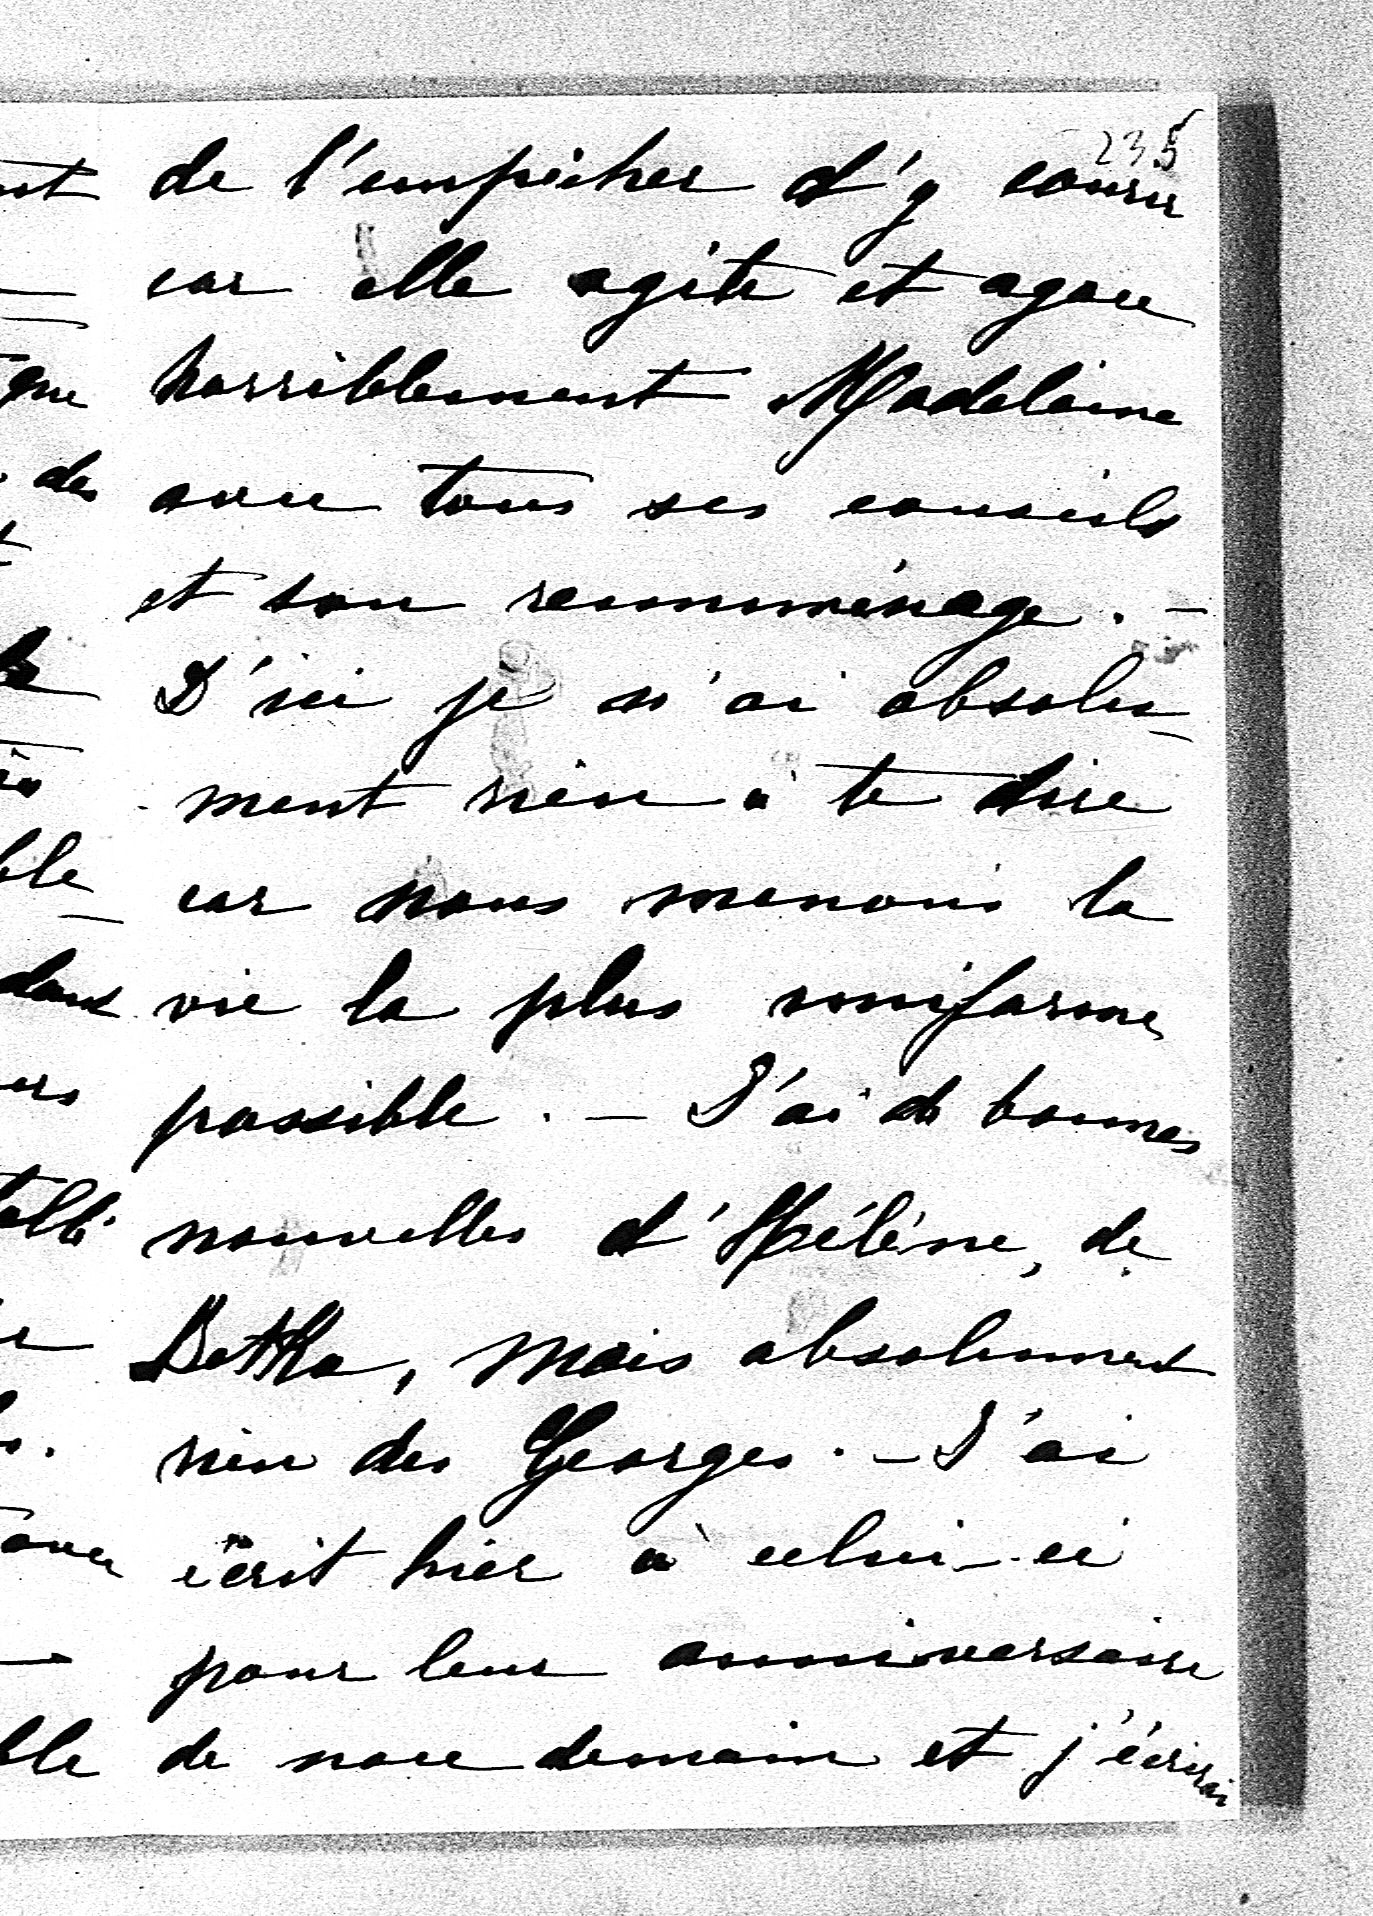 235
de l'empêcher d'y courir
car elle agite et agace
horriblement Madeleine
avec tous ses conseils
et son remuménage. —
D'ici je n'ai absolu-
ment rien à te dire
car nous menons la
vie la plus uniforme
possible. — J'ai de bonnes
nouvelles d'Hélène, de
Bethka, mais absolument
rien des Georges. — J'ai
écrit hier à celui-ci
pour leur anniversaire
de noce demain et j'écrirai
que
des
ble
dant
ble